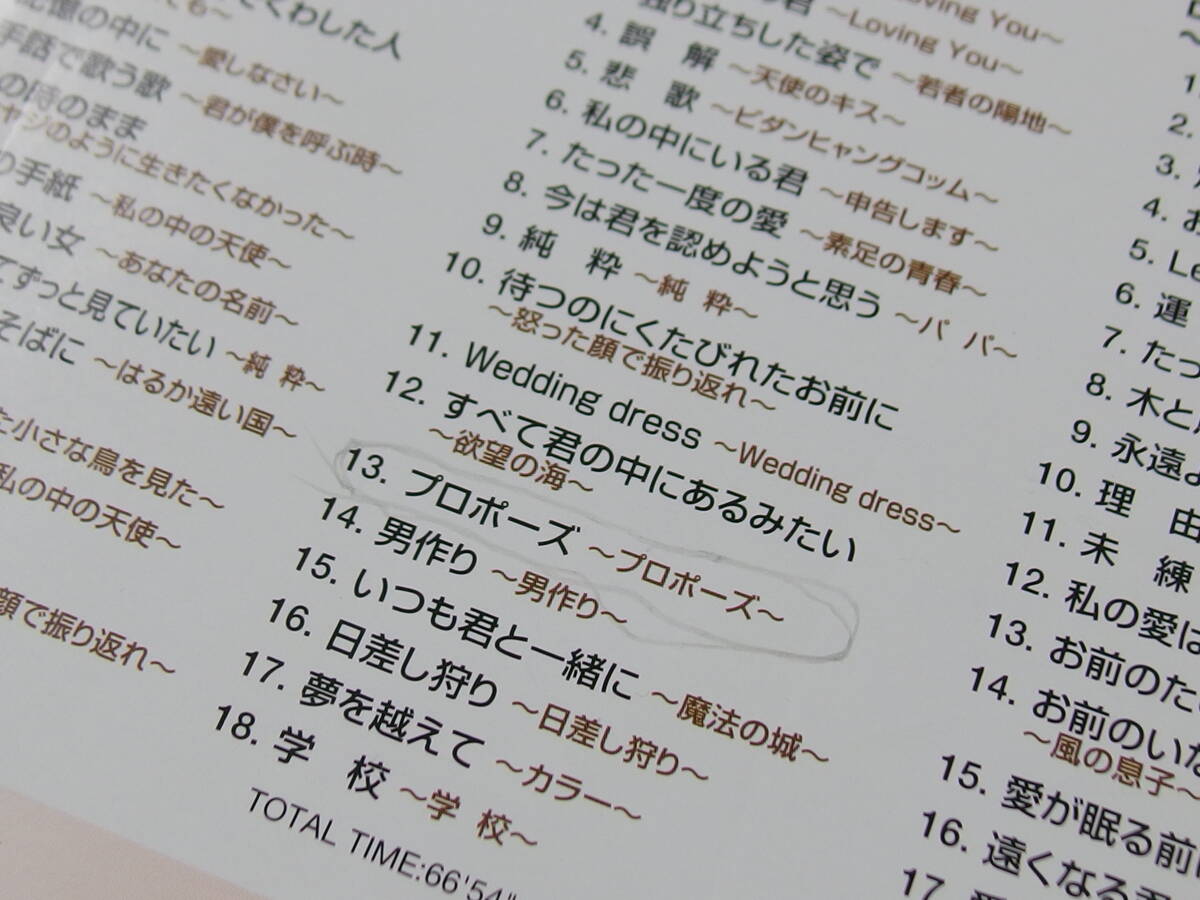 てくわした人
ても～
記憶の中に ～愛しなさい～
手話で歌う歌 ～君が僕を呼ぶ時～
の時のまま
ヤジのように生きたくなかった～
り手紙 ～私の中の天使～
良い女 ～あなたの名前～
てずっと見ていたい ～純 粋～
そばに ～はるか遠い国～
た小さな鳥を見た～
私の中の天使～
顔で振り返れ～
の君 ～Loving You～
独り立ちした姿で ～若者の陽地～
4. 誤 解 ～天使のキス～
5. 悲 歌 ～ビダンヒャングコッム～
6. 私の中にいる君 ～申告します～
7. たった一度の愛 ～素足の青春～
8. 今は君を認めようと思う ～パ パ～
9. 純 粋 ～純 粋～
10. 待つのにくたびれたお前に
～怒った顔で振り返れ～
11. Wedding dress ～Wedding dress～
12. すべて君の中にあるみたい
～欲望の海～
13. プロポーズ ～プロポーズ～
14. 男作り ～男作り～
15. いつも君と一緒に ～魔法の城～
16. 日差し狩り ～日差し狩り～
17. 夢を越えて ～カラー～
18. 学 校 ～学 校～
TOTAL TIME:66'54"
2.
3.
4. お
5. Le
6. 運
7. たっ
8. 木と
9. 永遠
10. 理 由
11. 未 練
12. 私の愛は
13. お前のた
14. お前のいな
～風の息子～
15. 愛が眠る前
16. 遠くなる君
17.